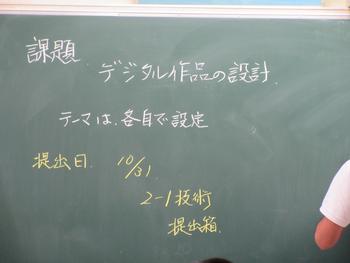 課題
デジタル作品の設計
テーマは、各自で設定
提出日 10/31
2-1 技術
提出箱